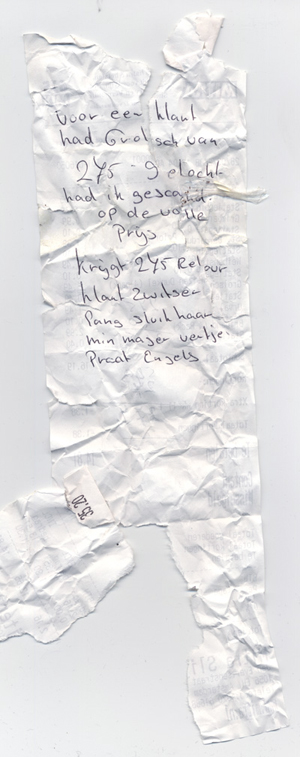 Voor een klant
had Grolsch van
245 - gelocht
had ik gescand
op de volle
Prijs
krijgt 245 Retour
klant Zwitser
Pang sluik haar
min mager ventje
Praat Engels
35,20